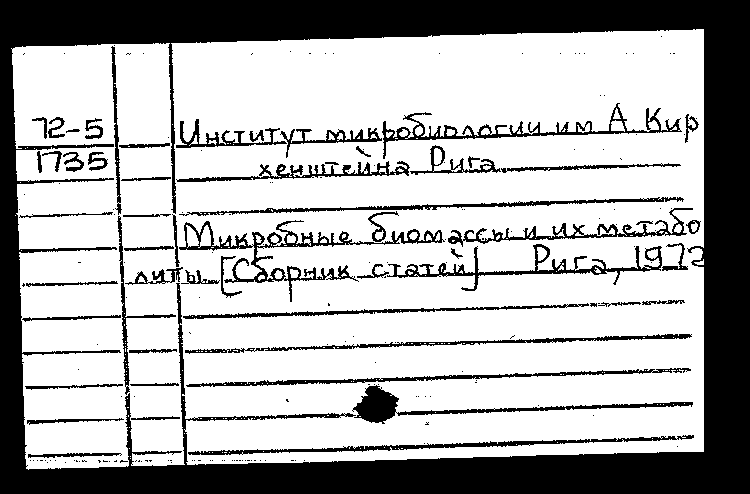 72-5
1735
Институт микробиологии им А. Кир
хенштейна Рига
Микробные биомассы и их метабо
литы. [Сборник статей] Рига, 1972